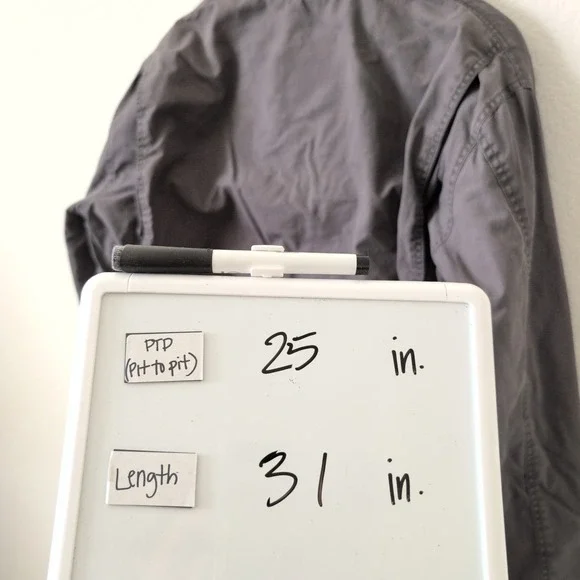 PTP
(Pit to pit)
25 in.
Length
31 in.